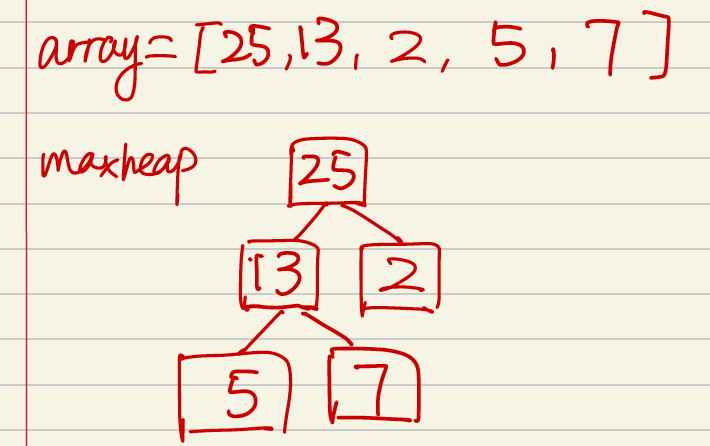 array = [25, 13, 2, 5, 7]
maxheap
25
13 2
5 7